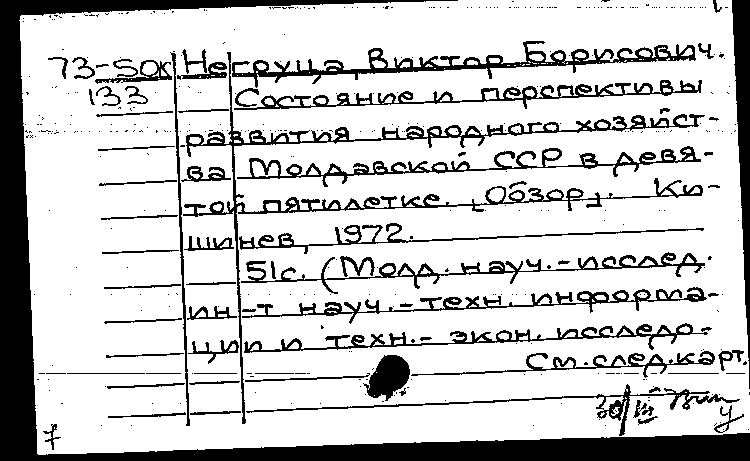 73-5ок Негруца, Виктор Борисович.
133 Состояние и перспективы
развития народного хозяйст-
ва Молдавской ССР в девя-
той пятилетке. [Обзор]. Ки-
шинев, 1972.
51с. (Молд. науч.-исслед.
ин-т науч.-техн. информа-
ции и техн.-экон. исследо-
См.след.карт.
30/III
7